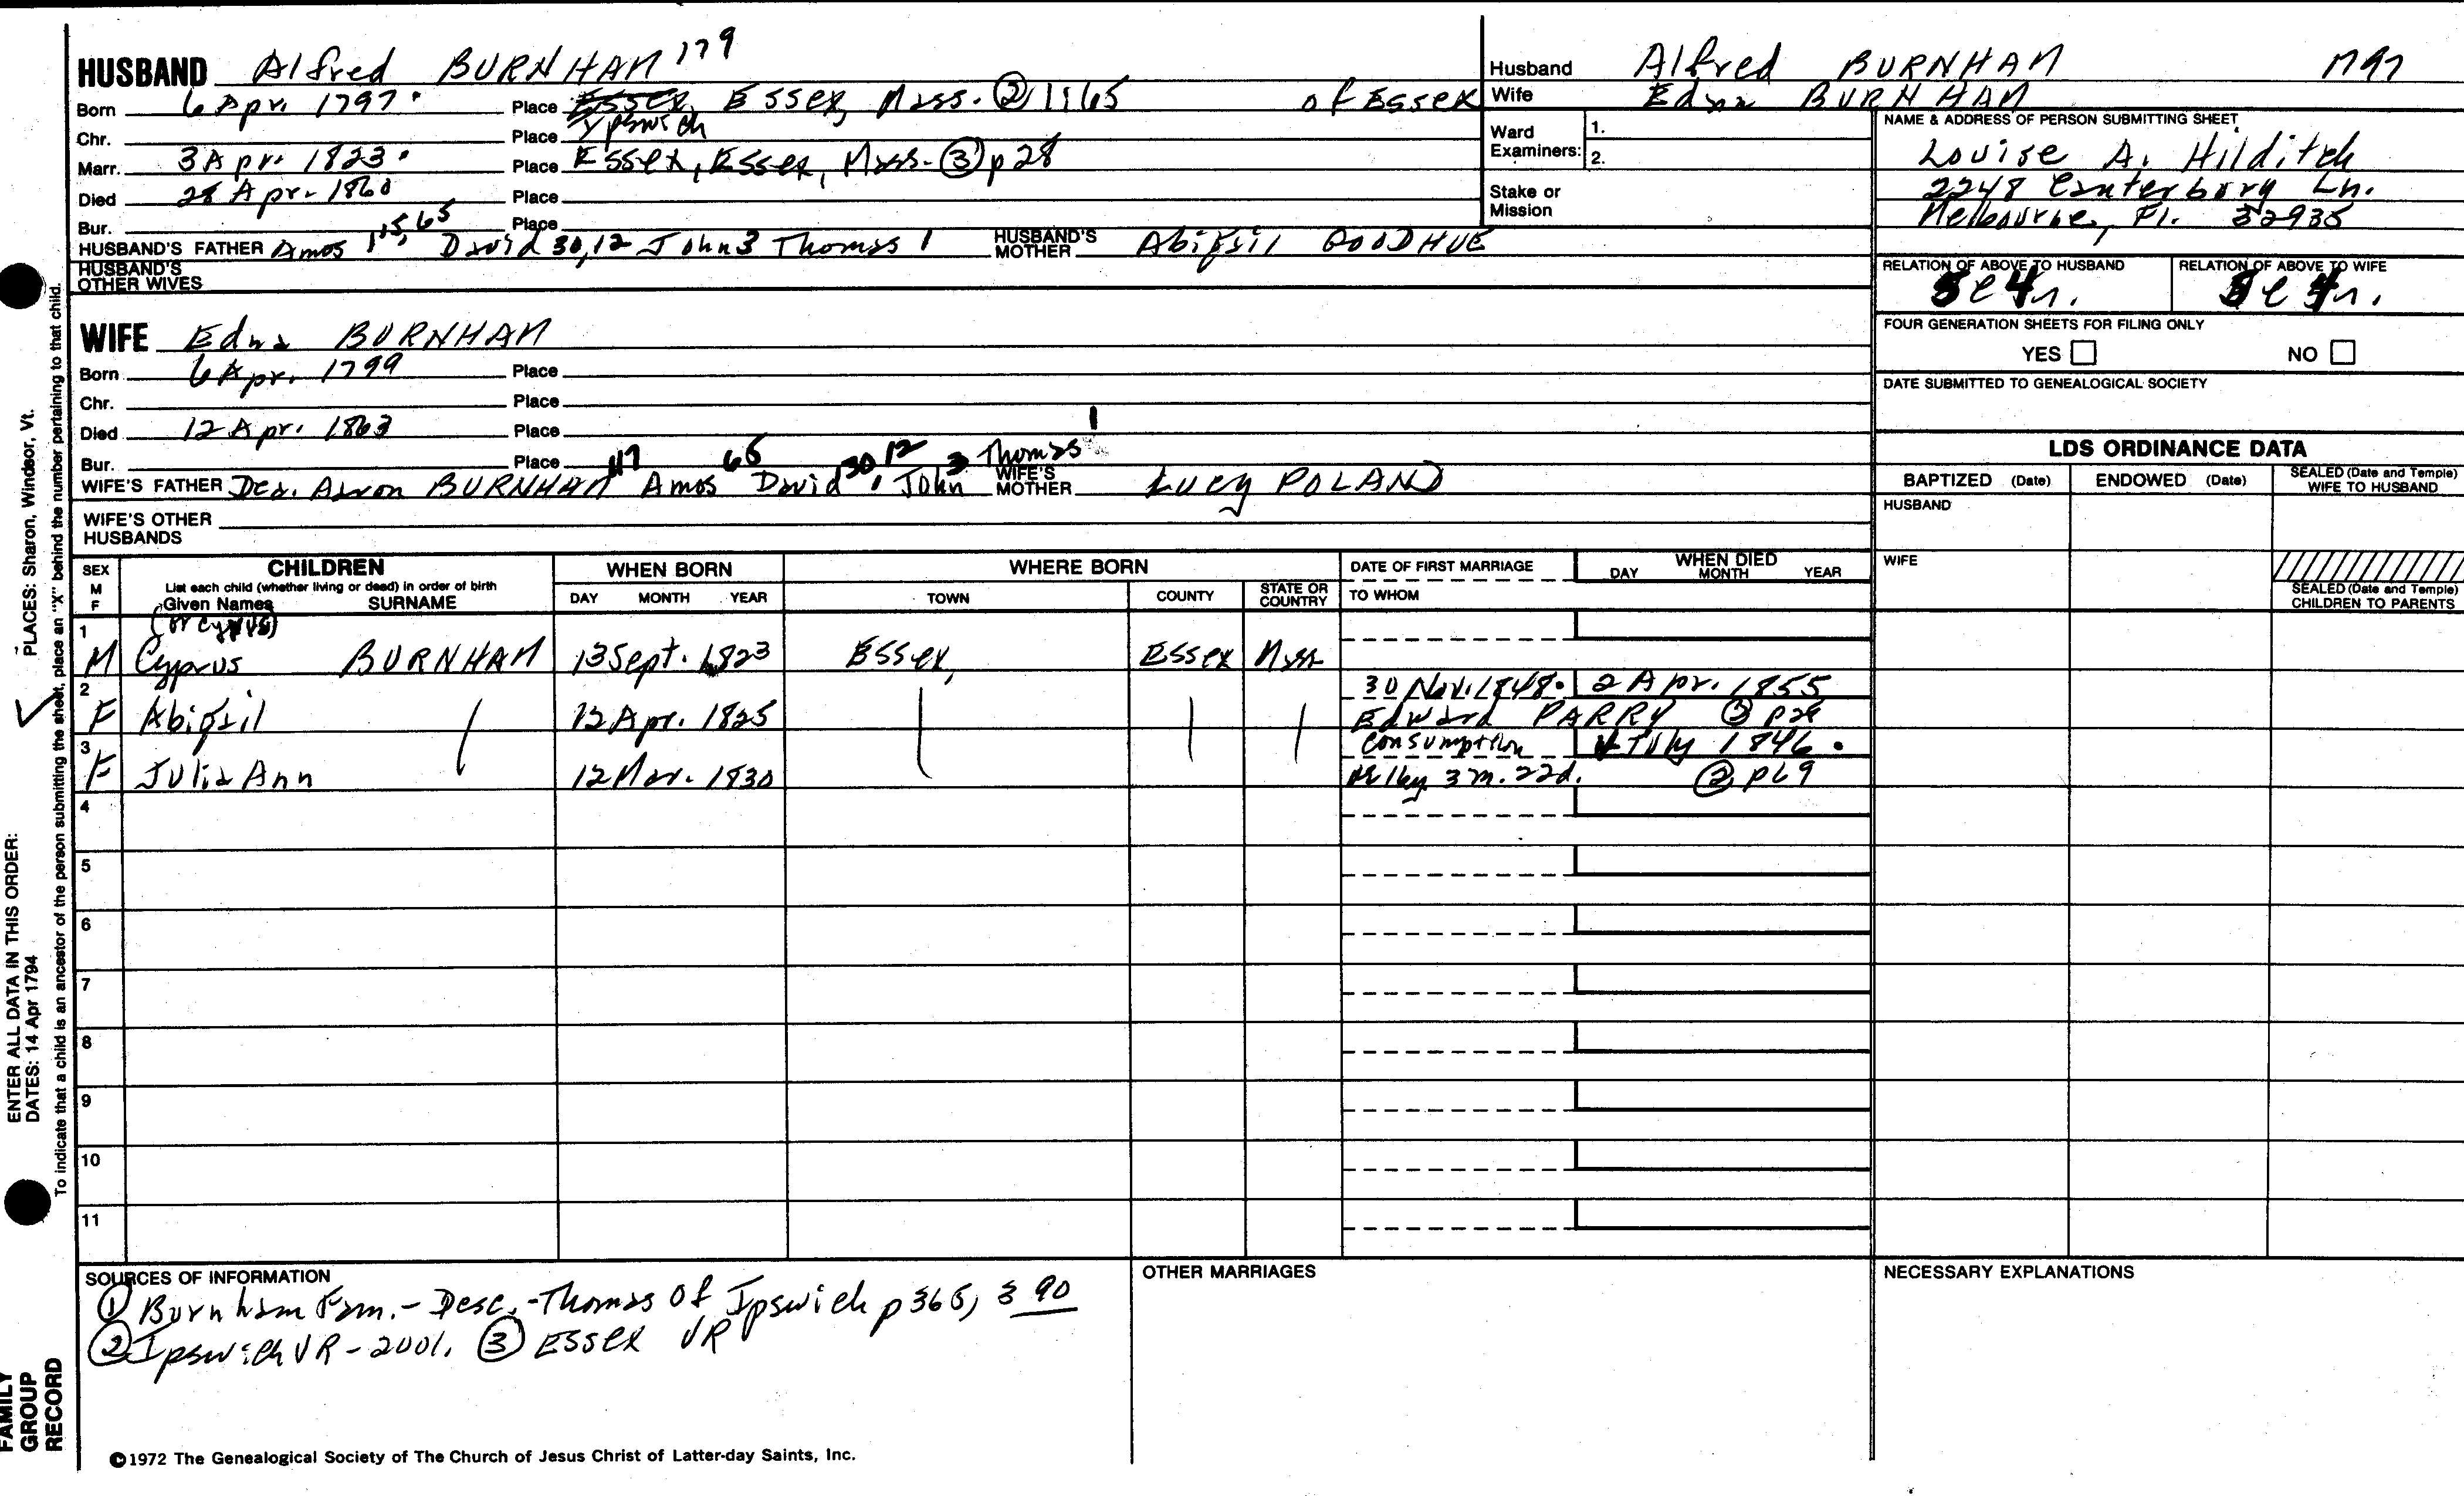 HUSBAND Alfred BURNHAM 179
Born 6 Apr. 1797. Place Essex, Essex, Mass. ② 1:65 of Essex
Ipswich
Chr. Place
Marr. 3 Apr. 1823. Place Essex, Essex, Mass. ③ p 28
Died 28 Apr. 1860 Place
Bur. Place
HUSBAND'S FATHER Amos 115, 65 David 30, 12 John 3 Thomas 1 HUSBAND'S MOTHER Abigail GOODHUE
HUSBAND'S OTHER WIVES
Husband Alfred BURNHAM 1797
Wife Edna BURNHAM
Ward Examiners: 1.
2.
Stake or Mission
NAME & ADDRESS OF PERSON SUBMITTING SHEET
Louise A. Hilditch
2248 Canterbury Ln.
Melbourne, Fl. 32935
RELATION OF ABOVE TO HUSBAND RELATION OF ABOVE TO WIFE
FOUR GENERATION SHEETS FOR FILING ONLY
YES NO
DATE SUBMITTED TO GENEALOGICAL SOCIETY
WIFE Edna BURNHAM
Born 6 Apr. 1799 Place
Chr. Place
Died 12 Apr. 1863 Place
Bur. Place
WIFE'S FATHER Dea. Aaron BURNHAM 117 Amos 65 David 30, 12 John 3 Thomas 1 WIFE'S MOTHER Lucy POLAND
WIFE'S OTHER HUSBANDS
LDS ORDINANCE DATA
BAPTIZED (Date) ENDOWED (Date) SEALED (Date and Temple) WIFE TO HUSBAND
HUSBAND
WIFE
SEALED (Date and Temple) CHILDREN TO PARENTS
SEX M F
CHILDREN
List each child (whether living or dead) in order of birth
Given Names SURNAME
WHEN BORN
DAY MONTH YEAR
WHERE BORN
TOWN COUNTY STATE OR COUNTRY
DATE OF FIRST MARRIAGE
TO WHOM
WHEN DIED
DAY MONTH YEAR
1 (or Cyrus)
M Cyprus BURNHAM 13 Sept. 1823 Essex, Essex Mass
2 30 Nov. 1848. 2 Apr. 1855
F Abigail 12 Apr. 1825 Edward PARRY ③ p28
3 consumption July 1846.
F Julia Ann 12 Mar. 1830 3 m. 22d. ② p69
4
5
6
7
8
9
10
11
SOURCES OF INFORMATION
① Burnham Fam. - Desc. - Thomas of Ipswich p 365, 390
② Ipswich VR - 2001. ③ Essex VR
OTHER MARRIAGES
NECESSARY EXPLANATIONS
©1972 The Genealogical Society of The Church of Jesus Christ of Latter-day Saints, Inc.
ENTER ALL DATA IN THIS ORDER:
DATES: 14 Apr 1794 PLACES: Sharon, Windsor, Vt.
To indicate that a child is an ancestor of the person submitting the sheet, place an "X" behind the number pertaining to that child.
FAMILY
GROUP
RECORD